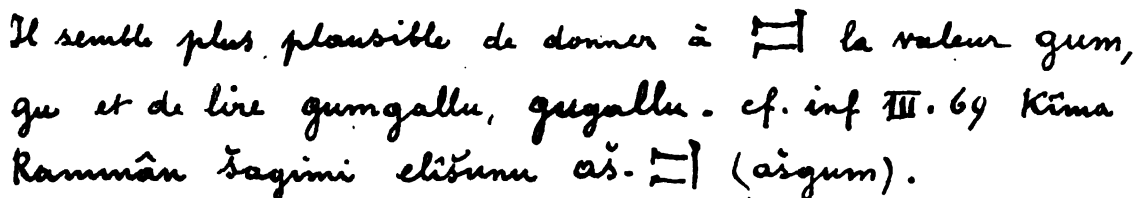 Il semble plus plausible de donner à 𒂟 la valeur gum,
gu et de lire gumgallu, gugallu. cf. inf III. 69 Kîma
Rammân šagimi elîšunu aš-𒂟 (ašgum).